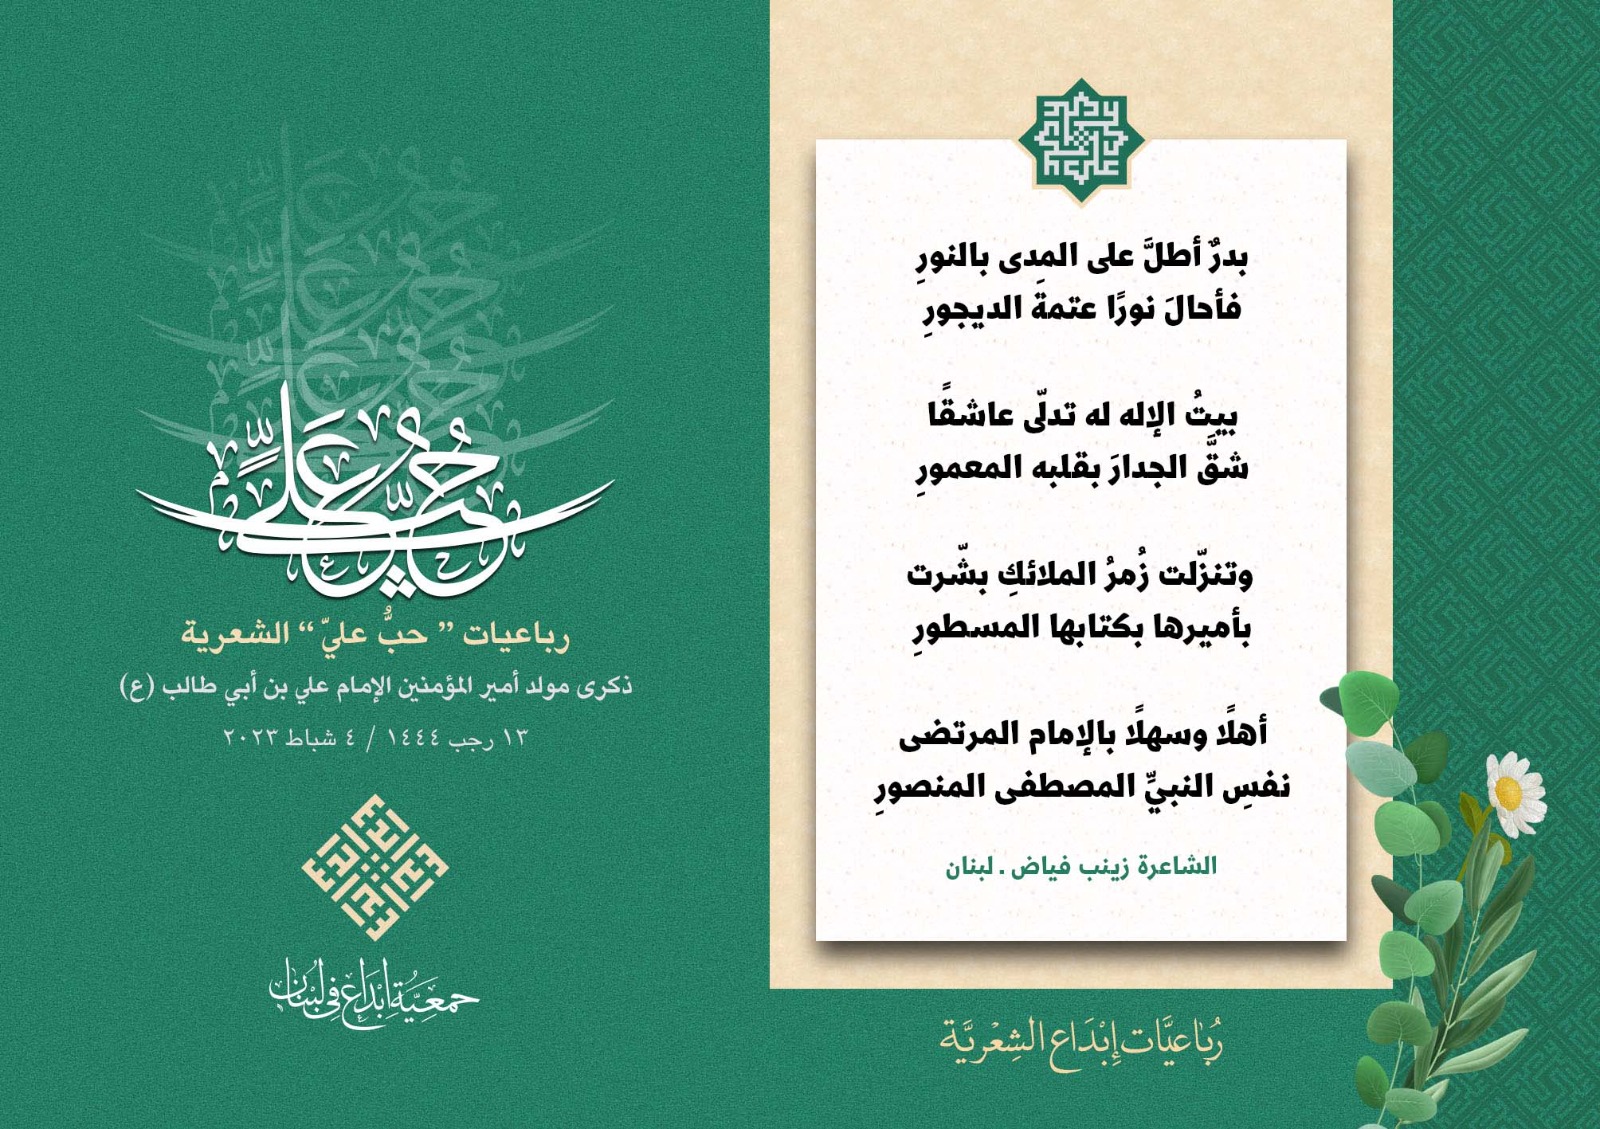 بدرٌ أطلَّ على المدِى بالنورِ
فأحالَ نورًا عتمةَ الديجورِ
بيتُ الإله له تدلّى عاشقًا
شقَّ الجدارَ بقلبه المعمورِ
وتنزّلت زُمرُ الملائكِ بشّرت
بأميرها بكتابها المسطورِ
أهلًا وسهلًا بالإمام المرتضى
نفسِ النبيِّ المصطفى المنصورِ
الشاعرة زينب فياض . لبنان
رُبَاعيَّات إِبْدَاع الشِعْريَّة
حُبُّ عَليٍّ
رباعيات ” حبُّ عليّ “ الشعرية
ذكرى مولد أمير المؤمنين الإمام علي بن أبي طالب (ع)
١٣ رجب ١٤٤٤ / ٤ شباط ٢٠٢٣
جمعيَّة إبْدَاع في لبْنَان